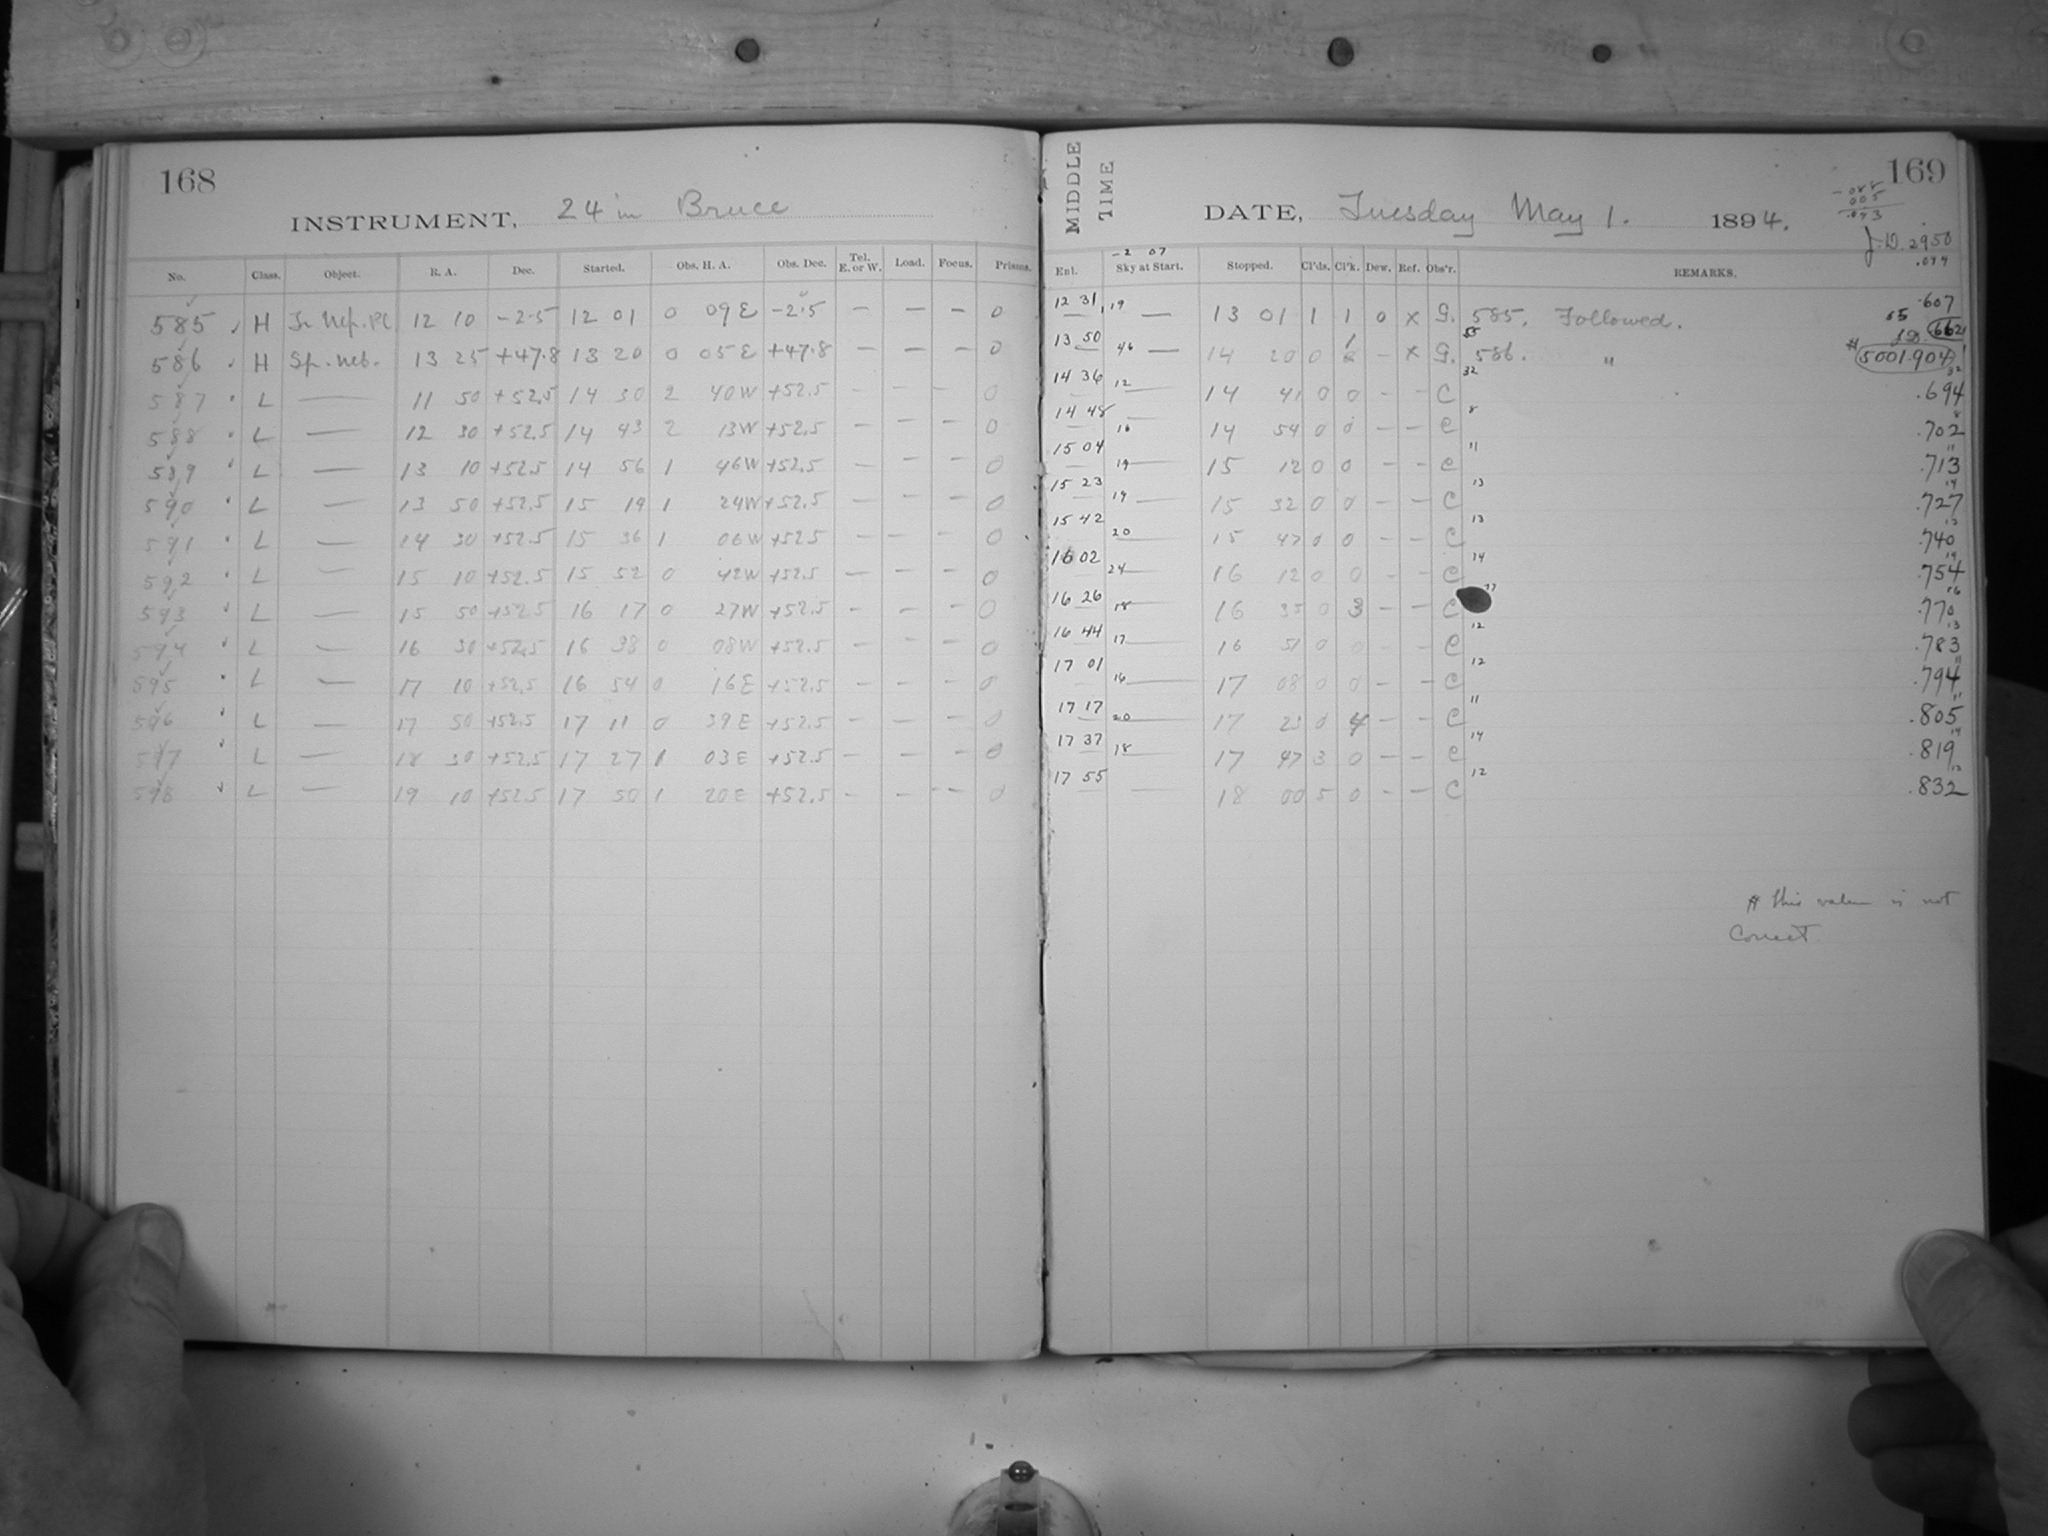 168
INSTRUMENT, 24 in Bruce
No. Class. Object. R. A. Dec. Started. Obs. H. A. Obs. Dec. Tel. E. or W. Load. Focus. Prisms.
585 H 12 10 -2.5 12 01 0 09 E -2.5 — — — 0
586 H Sp. neb. 13 25 +47.8 13 20 0 05 E +47.8 — — — 0
587 L — 11 50 +52.5 14 30 2 40 W +52.5 — — — 0
588 L — 12 30 +52.5 14 43 2 13 W +52.5 — — — 0
589 L — 13 10 +52.5 14 56 1 46 W +52.5 — — — 0
590 L — 13 50 +52.5 15 14 1 24 W +52.5 — — — 0
591 L — 14 30 +52.5 15 36 1 06 W +52.5 — — — 0
592 L — 15 10 +52.5 15 52 0 42 W +52.5 — — — 0
593 L — 15 50 +52.5 16 17 0 27 W +52.5 — — — 0
594 L — 16 30 +52.5 16 38 0 08 W +52.5 — — — 0
595 L — 17 10 +52.5 16 54 0 16 E +52.5 — — — 0
596 L — 17 50 +52.5 17 11 0 39 E +52.5 — — — 0
597 L — 18 30 +52.5 17 27 1 03 E +52.5 — — — 0
598 L — 19 10 +52.5 17 50 1 20 E +52.5 — — — 0
169
MIDDLE TIME
DATE, Tuesday May 1. 1894.
J.D. 2950
-2 07
Exl. Sky at Start. Stopped. Cl'ds. Cl'k. Dew. Ref. Obs'r. REMARKS.
12 31 19 — 13 01 1 1 0 x G. 585. Followed. .607
13 50 46 — 14 20 0 — x G. 55 586. " # 5001.904
14 36 12 — 14 41 0 0 — — C 32 .694
14 48 16 — 14 54 0 0 — — C 8 .702
15 04 19 — 15 12 0 0 — — C 11 .713
15 23 19 — 15 32 0 0 — — C 13 .727
15 42 20 — 15 47 0 0 — — C 13 .740
16 02 24 — 16 12 0 0 — — C 14 .754
16 26 18 — 16 35 0 3 — — C 17 .770
16 44 17 — 16 51 0 0 — — C 12 .783
17 01 16 — 17 08 0 0 — — C 12 .794
17 17 20 — 17 23 0 4 — — C 11 .805
17 37 18 — 17 47 3 0 — — C 14 .819
17 55 — 18 00 5 0 — — C 12 .832
# this value is not
Correct.